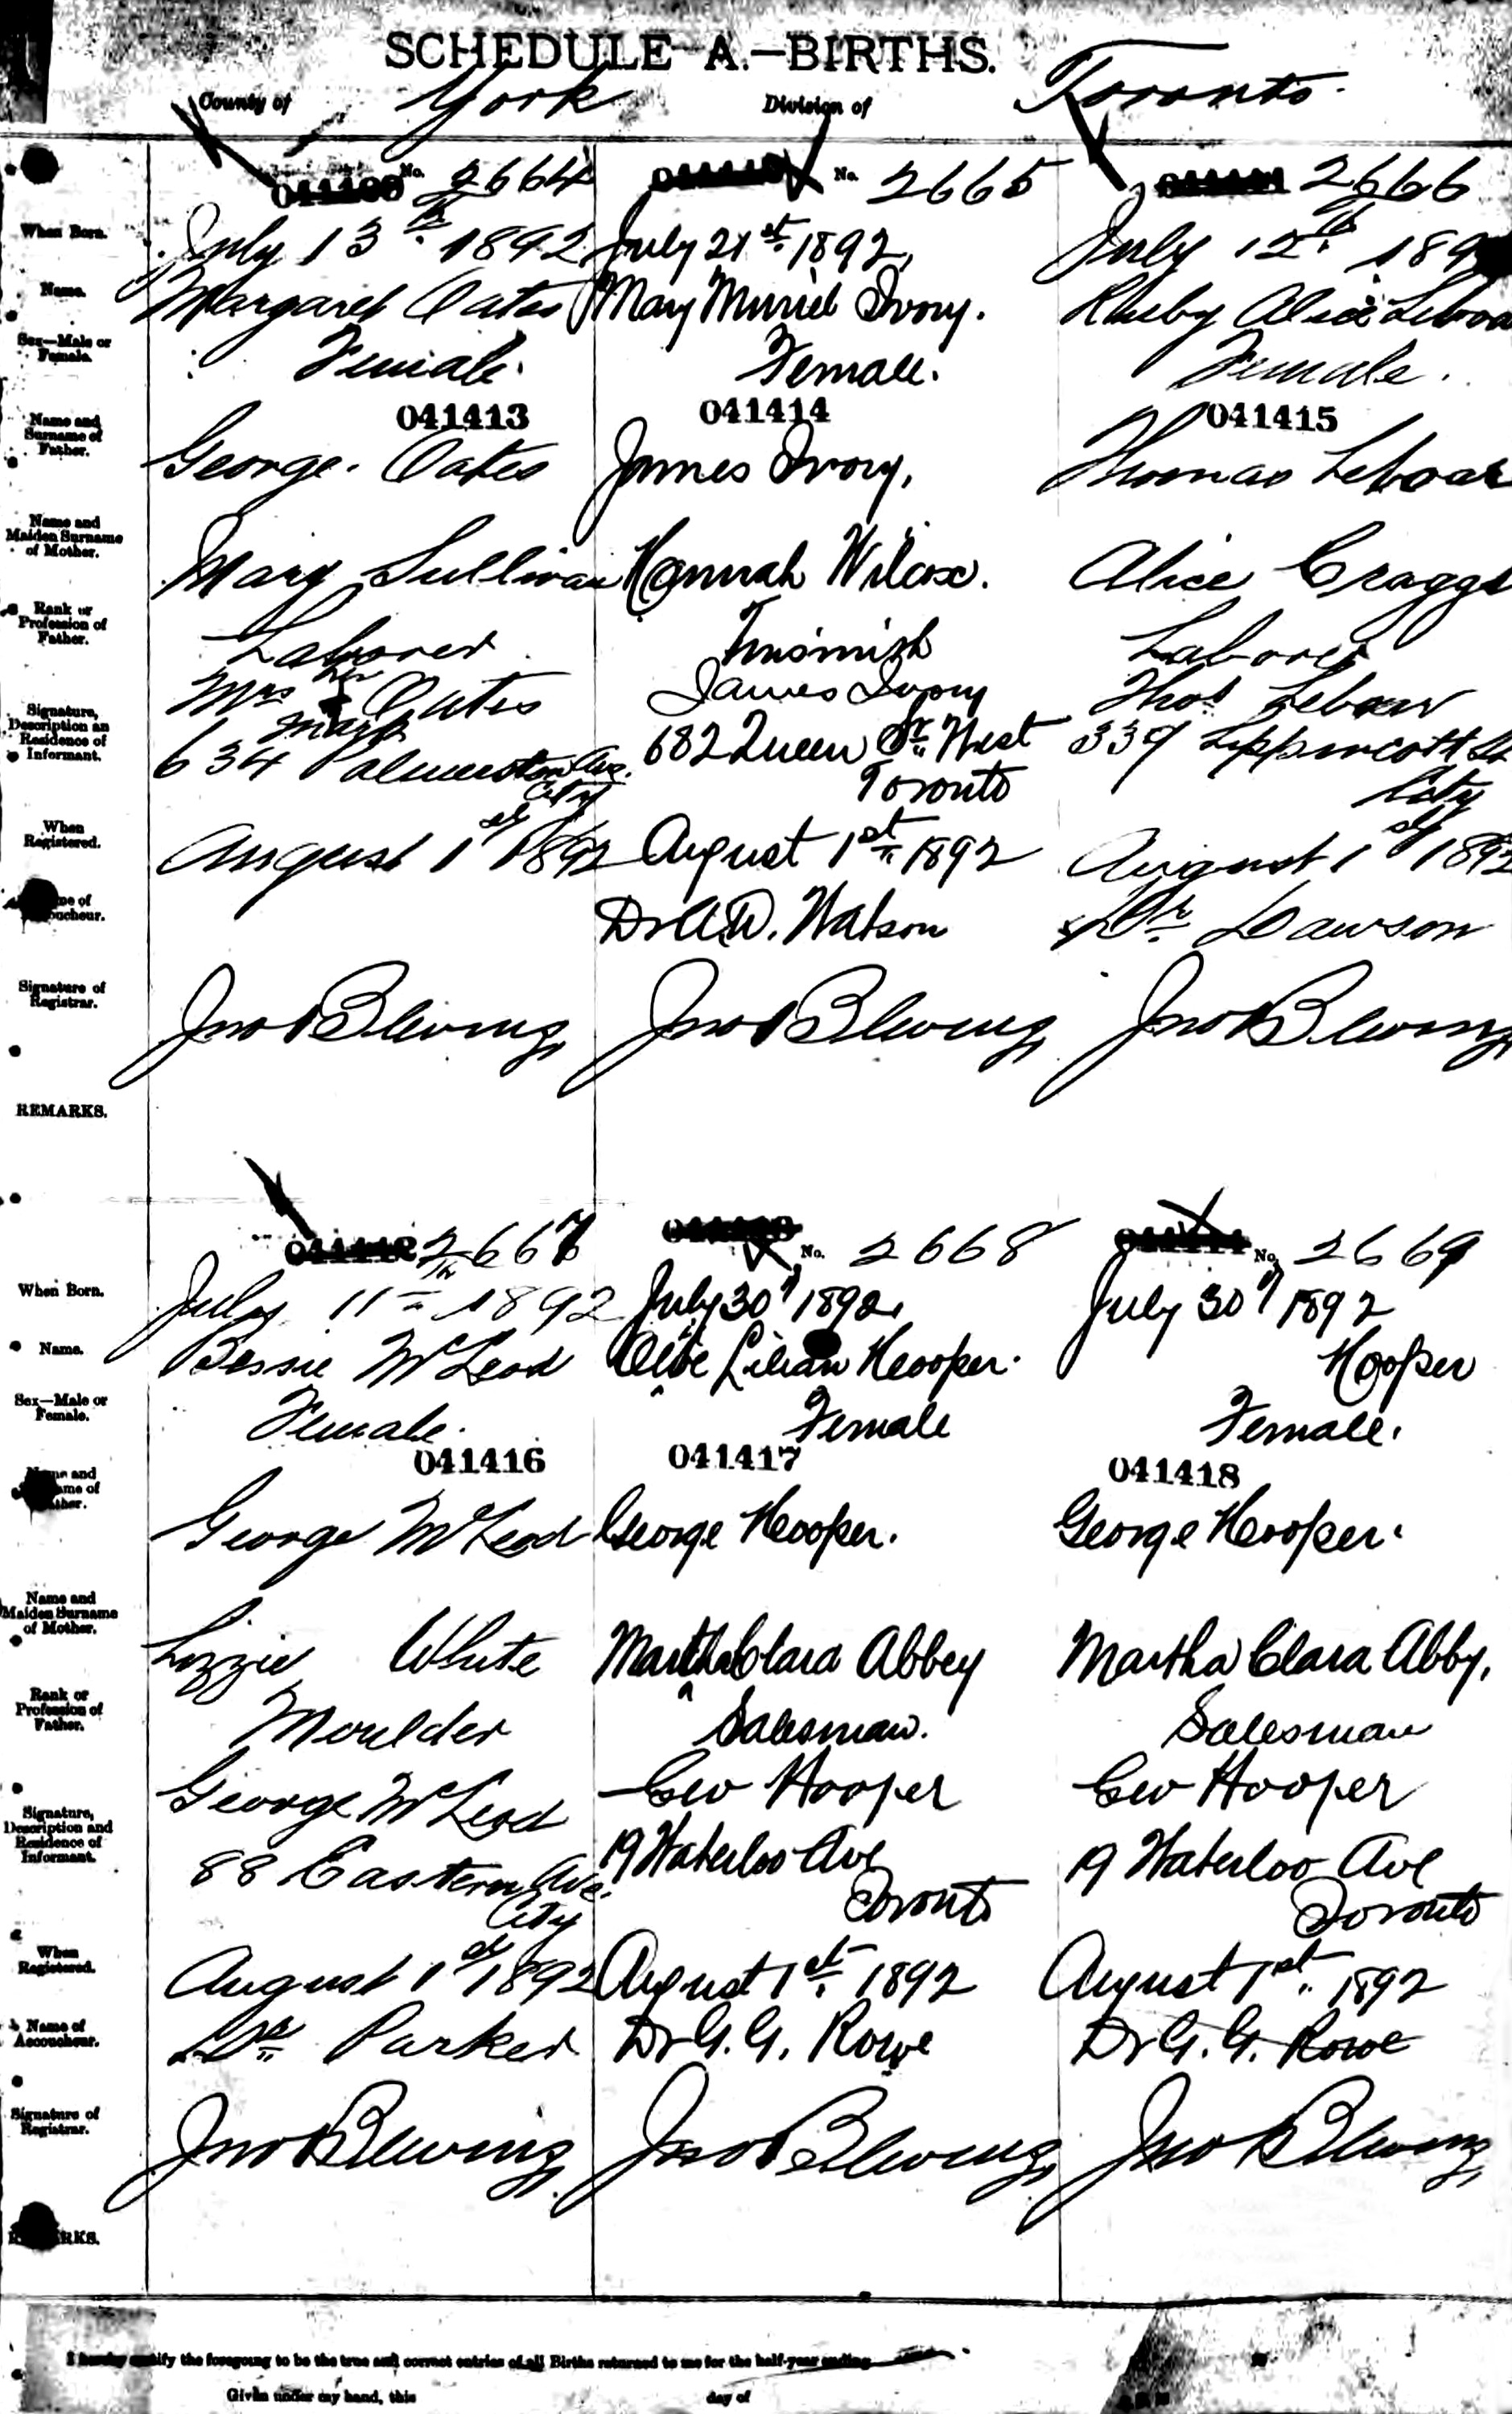 SCHEDULE A.—BIRTHS.
County of York Division of Toronto.
No. 2664
July 13th 1892
Margaret Oates
Female
041413
George Oates
Mary Sullivan
Laborer
Mrs her Oates
mark
634 Palmerston Av.
City
August 1st 1892
Signature of Registrar.
REMARKS.
No. 2665
July 21st 1892,
Mary Muriel Ivory.
Female.
041414
James Ivory,
Hannah Wilcox.
Tinsmith
James Ivory
682 Queen St. West
Toronto
August 1st 1892
Dr A.D. Watson
2666
July 12th 189
Rhuby Alice
Female.
041415
Thomas
Alice Craggs
Laborer
Thos Lebarr
339 Lippincott St
City
August 1st 1892
Dr. Dawson
When Born.
Name.
Sex—Male or Female.
Name and Surname of Father.
Name and Maiden Surname of Mother.
Rank or Profession of Father.
Signature, Description an Residence of Informant.
When Registered.
2667
July 11th 1892
Bessie McLeod
Female.
041416
George McLeod
Lizzie White
Moulder
George McLeod
88 Eastern Ave.
City
August 1st 1892
Dr. Parker
No. 2668
July 30" 1892.
Lilian Hooper.
Female
041417
George Hooper.
Martha Clara Abbey
Salesman.
Geo Hooper
19 Waterloo Ave
Toronto
August 1st 1892
Dr G. G. Rowe
No. 2669
July 30" 1892
Hooper
Female.
041418
George Hooper.
Martha Clara Abby.
Salesman
Geo Hooper
19 Waterloo Ave
Toronto
August 1st 1892
Dr G. G. Rowe
When Born.
Name.
Sex—Male or Female.
Name and Maiden Surname of Mother.
Rank or Profession of Father.
Signature, Description and Residence of Informant.
When Registered.
Name of Accoucheur.
Signature of Registrar.
I hereby certify the foregoing to be the true and correct entries of all Births returned to me for the half-year ending
Given under my hand, this day of